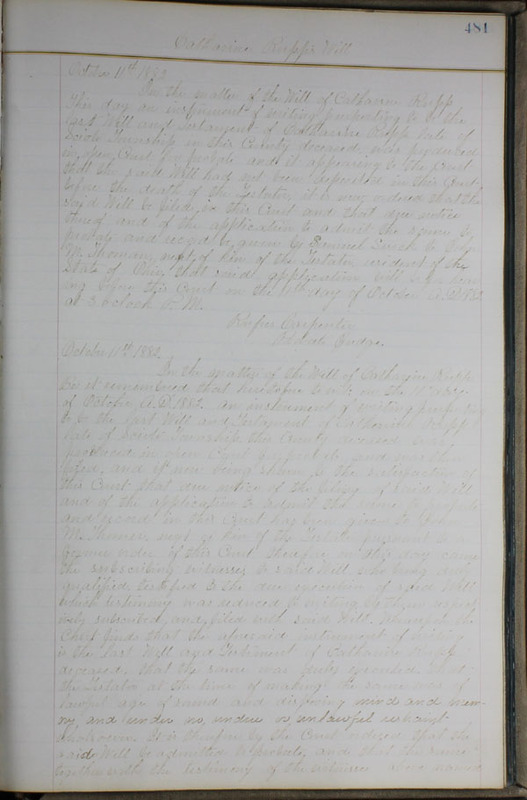 481
Catharine Rupp's Will
October 11th 1882
In the matter of the Will of Catharine Rupp
This day an instrument of writing purporting to be the
last Will and testament of Catharine Rupp late of
Scioto Township in this County deceased, was produced
in open Court for probate and it appearing to the Court
that the said Will had not been deposited in this Court
before the death of the Testator, it is now ordered that the
said Will be filed in this Court and that due notice
thereof and of the application to admit the same to
probate and record be given by
next of kin of the Testator resident of the
State of Ohio, that said application will be for hear-
ing before this Court on the 11th day of October A.D. 1882
at 3 o'clock P.M.
Rufus Carpenter
Probate Judge.
October 11th 1882.
In the matter of the Will of Catharine Rupp
Be it remembered that heretofore to wit on the
of October A.D. 1882 an instrument of writing purporting
to be the last Will and Testament of Catharine Rupp
late of Scioto Township this County deceased was
produced in open Court and was then
filed, and it now being shown to the satisfaction of
this Court that due notice of the filing of said Will
and of the application to admit the same to probate
and record in this Court has been given to
next of kin of the Testator pursuant to
former order of this Court therefore on this day came
the subscribing witnesses to said Will who being duly
qualified, testified to the due execution of said Will
which testimony was reduced to writing by them respect-
ively subscribed, and filed with said Will. Whereupon the
Court finds that the aforesaid instrument of writing
is the last Will and Testament of Catharine Rupp
deceased, that the same was duly executed that
the Testator at the time of making the same was of
lawful age of sound and disposing mind and mem-
ory, and under no, undue or unlawful restraint
whatsoever. It is therefore by the Court ordered that the
said Will be admitted to probate, and that the same
together with the testimony of the witnesses